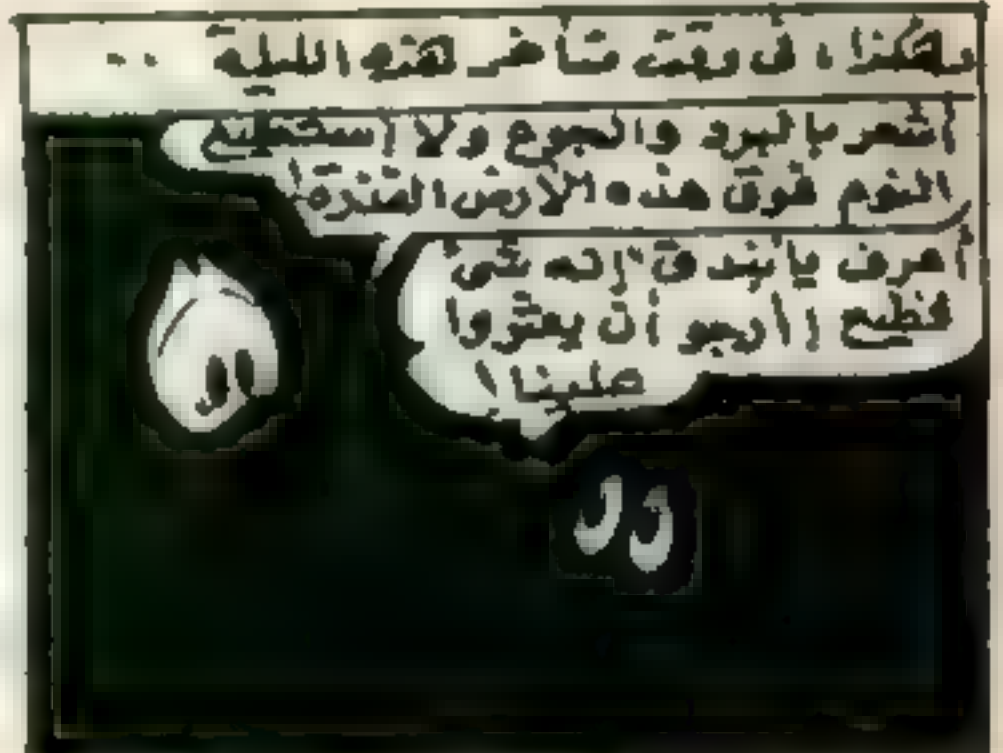 وهكذا، في وقت متأخر هذه الليلة ..
أشعر بالبرد والجوع ولا أستطيع
النوم فوق هذه الأرض القذرة!
أعرف يا بندق إنه شئ
فظيع ! أرجو أن يعثروا
علينا !